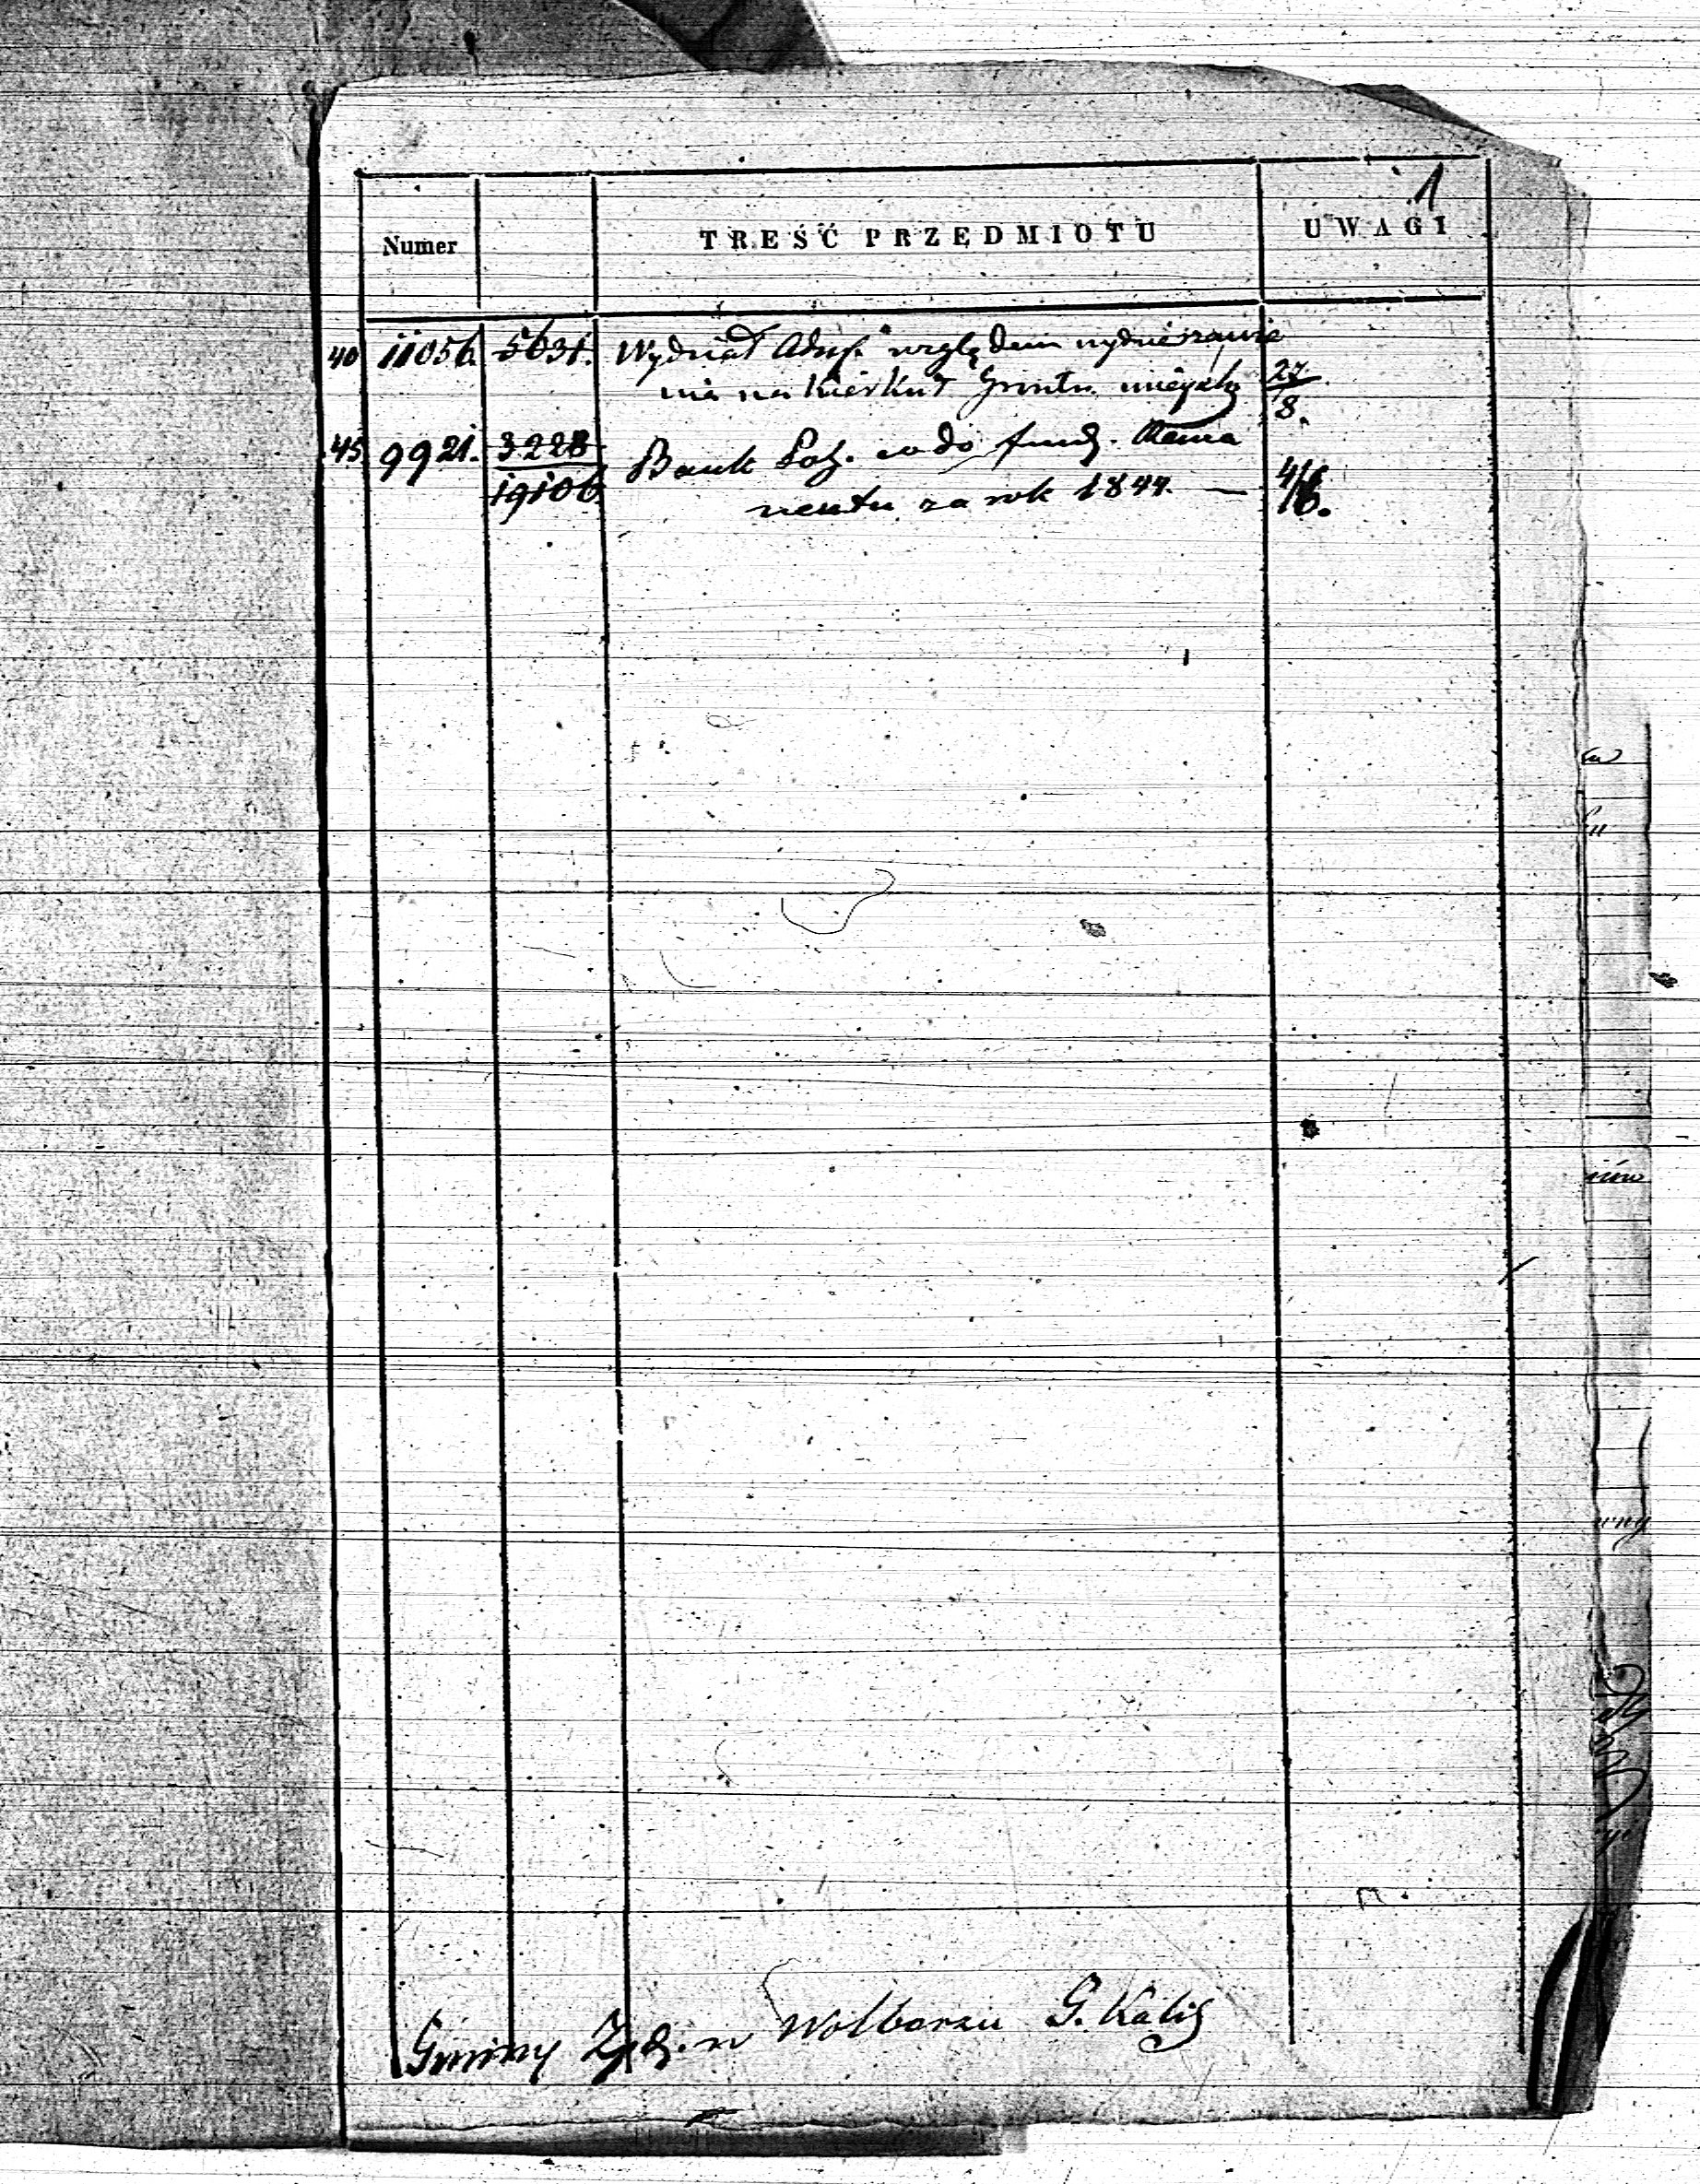 1
Numer TREŚĆ PRZEDMIOTU UWAGI
40 11056. 5631. Wydział Adm. względem wydzierzawie
nia na kierkut Gruntu 27/8.
45 9921. 3228/19106 Bank Pol. co do fund. Rema
nentu za rok 1844. — 4/6.
Gminy Żyd. w Wolborzu G. Kalis